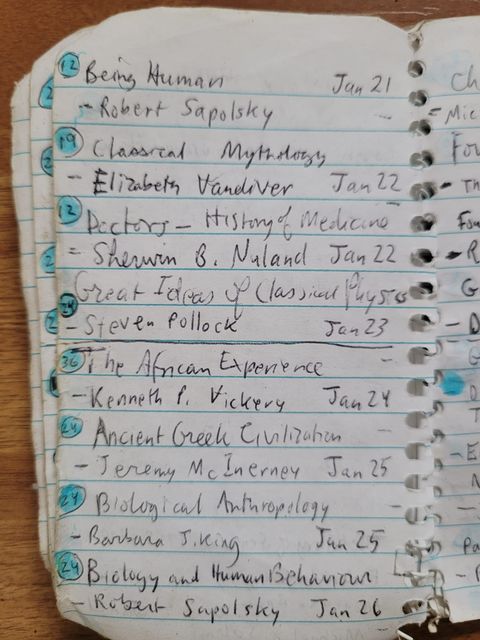 12 Being Human Jan 21
- Robert Sapolsky -
19 Classical Mythology
- Elizabeth Vandiver Jan 22
12 Doctors - History of Medicine
= Sherwin B. Nuland Jan 22
24 Great Ideas of Classical Physics
- Steven Pollock Jan 23
36 The African Experience -
- Kenneth P. Vickery Jan 24
24 Ancient Greek Civilization -
- Jeremy McInerney Jan 25
24 Biological Anthropology -
- Barbara J. King Jan 25
24 Biology and Human Behaviour
- Robert Sapolsky Jan 26